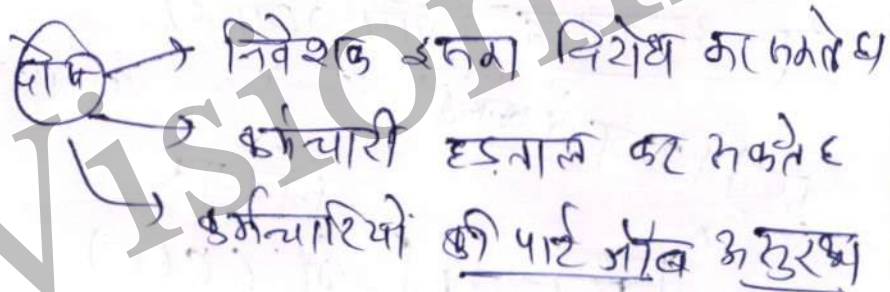 दोष → निवेशक इनका विरोध कर सकते हैं
→ कर्मचारी हड़ताल कर सकते हैं
→ कर्मचारियों की पार्ट जॉब असुरक्षा